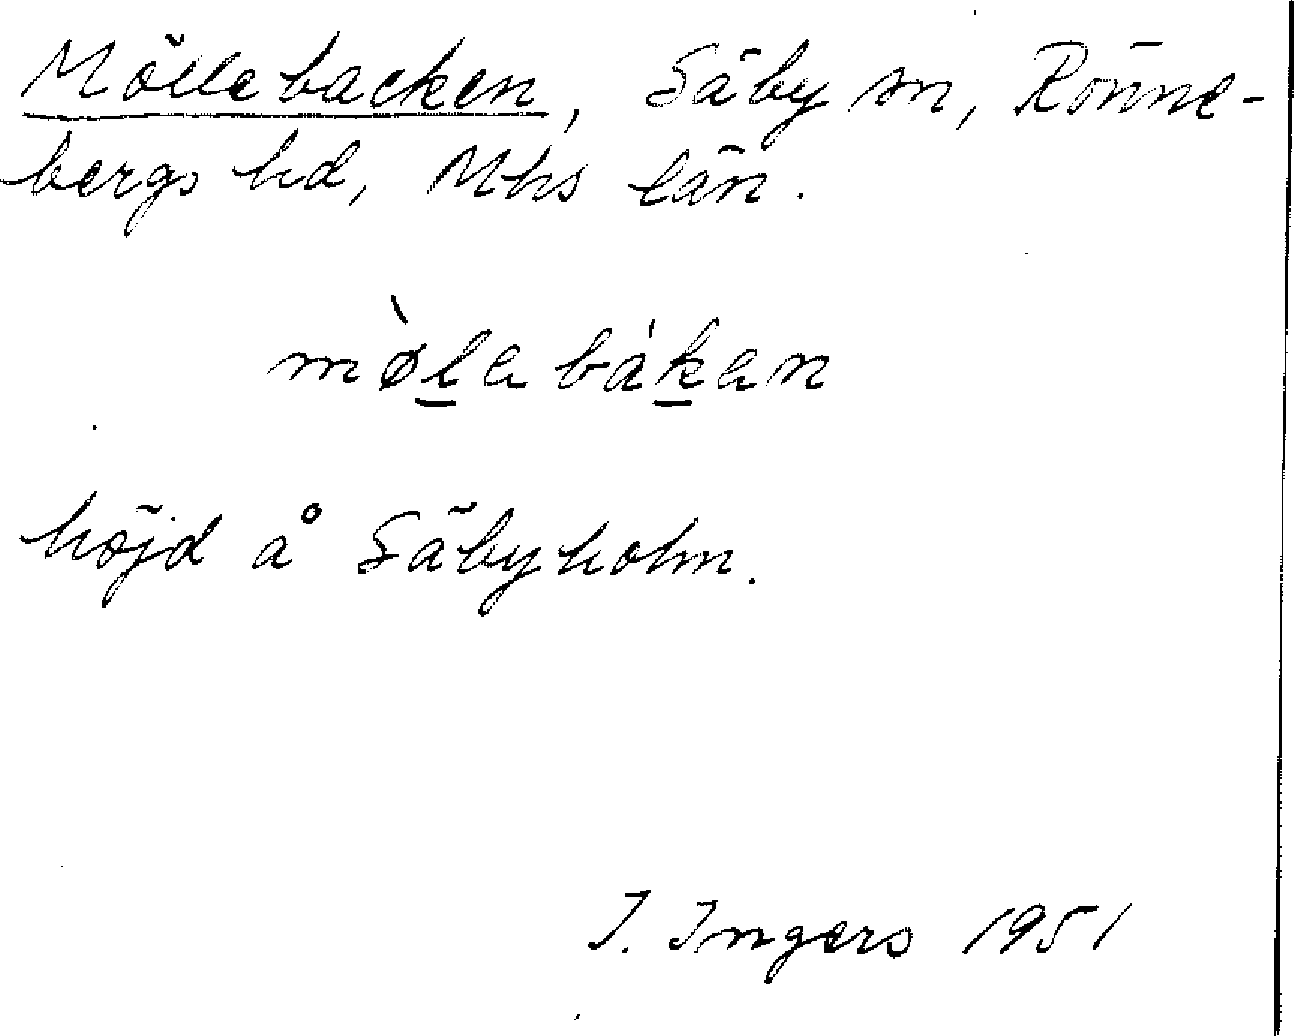 Möllebacken, Säby sn, Rönne-
bergs hd, Mhs län.
mø̀la bákan
höjd å Säbyholm.
I. Ingers 1951